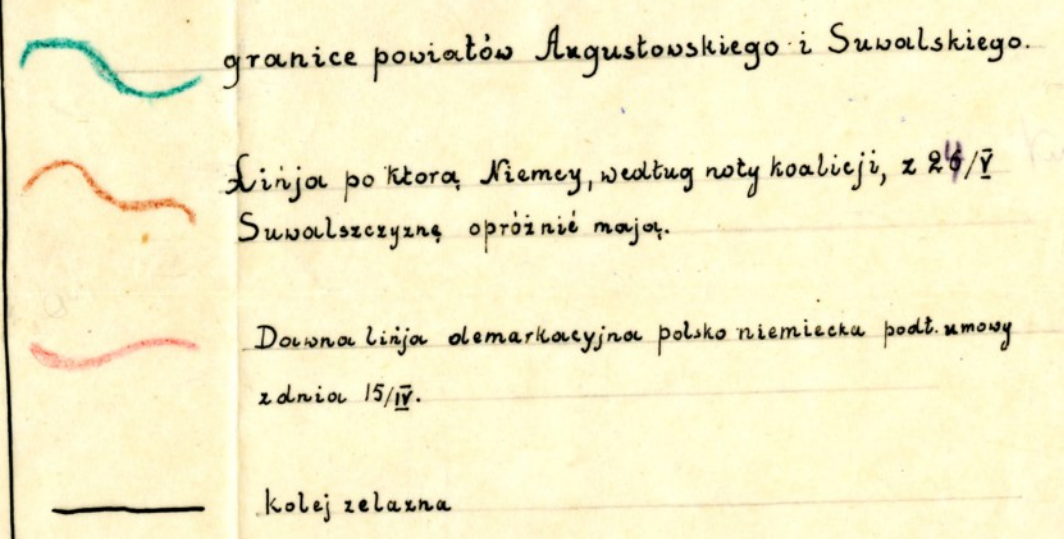 granice powiatów Augustowskiego i Suwalskiego.
Linja po ktorą Niemcy, według noty koalicji, z 24/V
Suwalszczyznę opróżnić mają.
Dawna linja demarkacyjna polsko niemiecka podł. umowy
z dnia 15/IV.
kolej zelazna